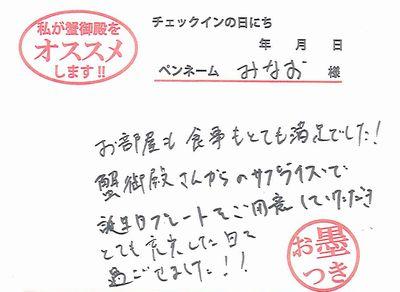 私が蟹御殿を
オススメ
します!!
チェックインの日にち
年 月 日
ペンネーム みなお 様
お部屋も食事もとても満足でした!
蟹御殿さんからのサプライズで
誕生日プレートをご用意していただき
とても充実した日を
過ごせました!!
お墨
つき